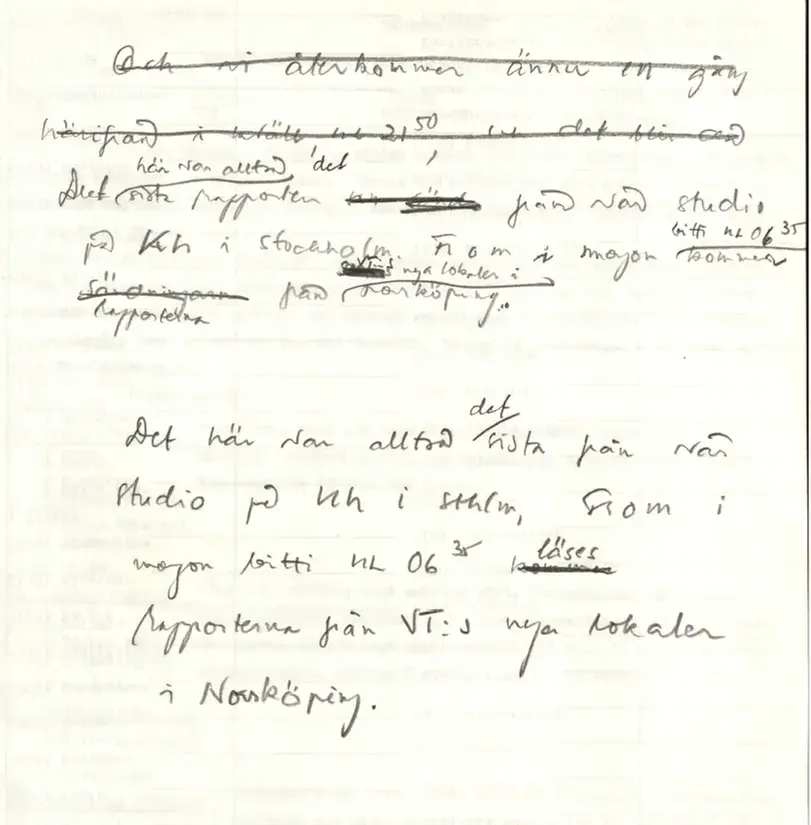 Och vi återkommer ännu en gång
härifrån i kväll kl 21 50, och det blir
här var alltså det
Det sista rapporten från vår studio
bitti kl 06 35
på Kh i Stockholm. From i morgon kommer
VT:s nya lokaler i
sändningarna från Norrköping..
Rapporterna
det
Det här var alltså sista från vår
studio på Kh i Sthlm, From i
morgon bitti kl 06 35 läses
Rapporterna från VT:s nya lokaler
i Norrköping.